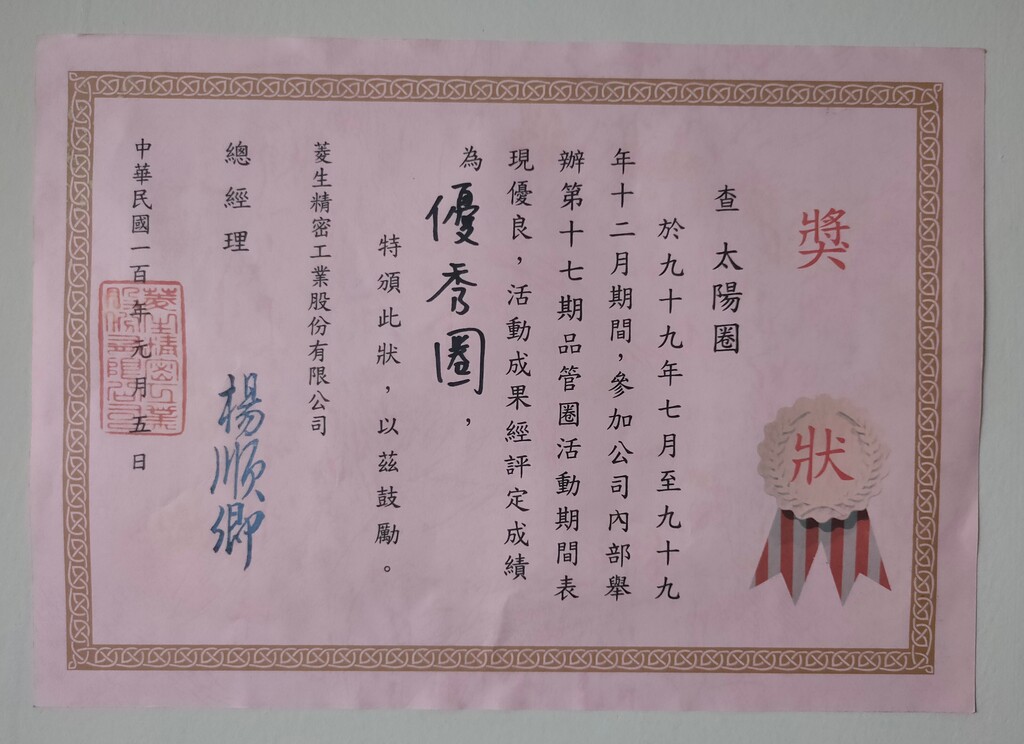 獎狀
查 太陽圈
於九十九年七月至九十九
年十二月期間，參加公司內部舉
辦第十七期品管圈活動期間表
現優良，活動成果經評定成績
為優秀圈，
特頒此狀，以茲鼓勵。
菱生精密工業股份有限公司
總經理 楊順卿
中華民國一百年元月五日
菱生精密工業股份有限公司